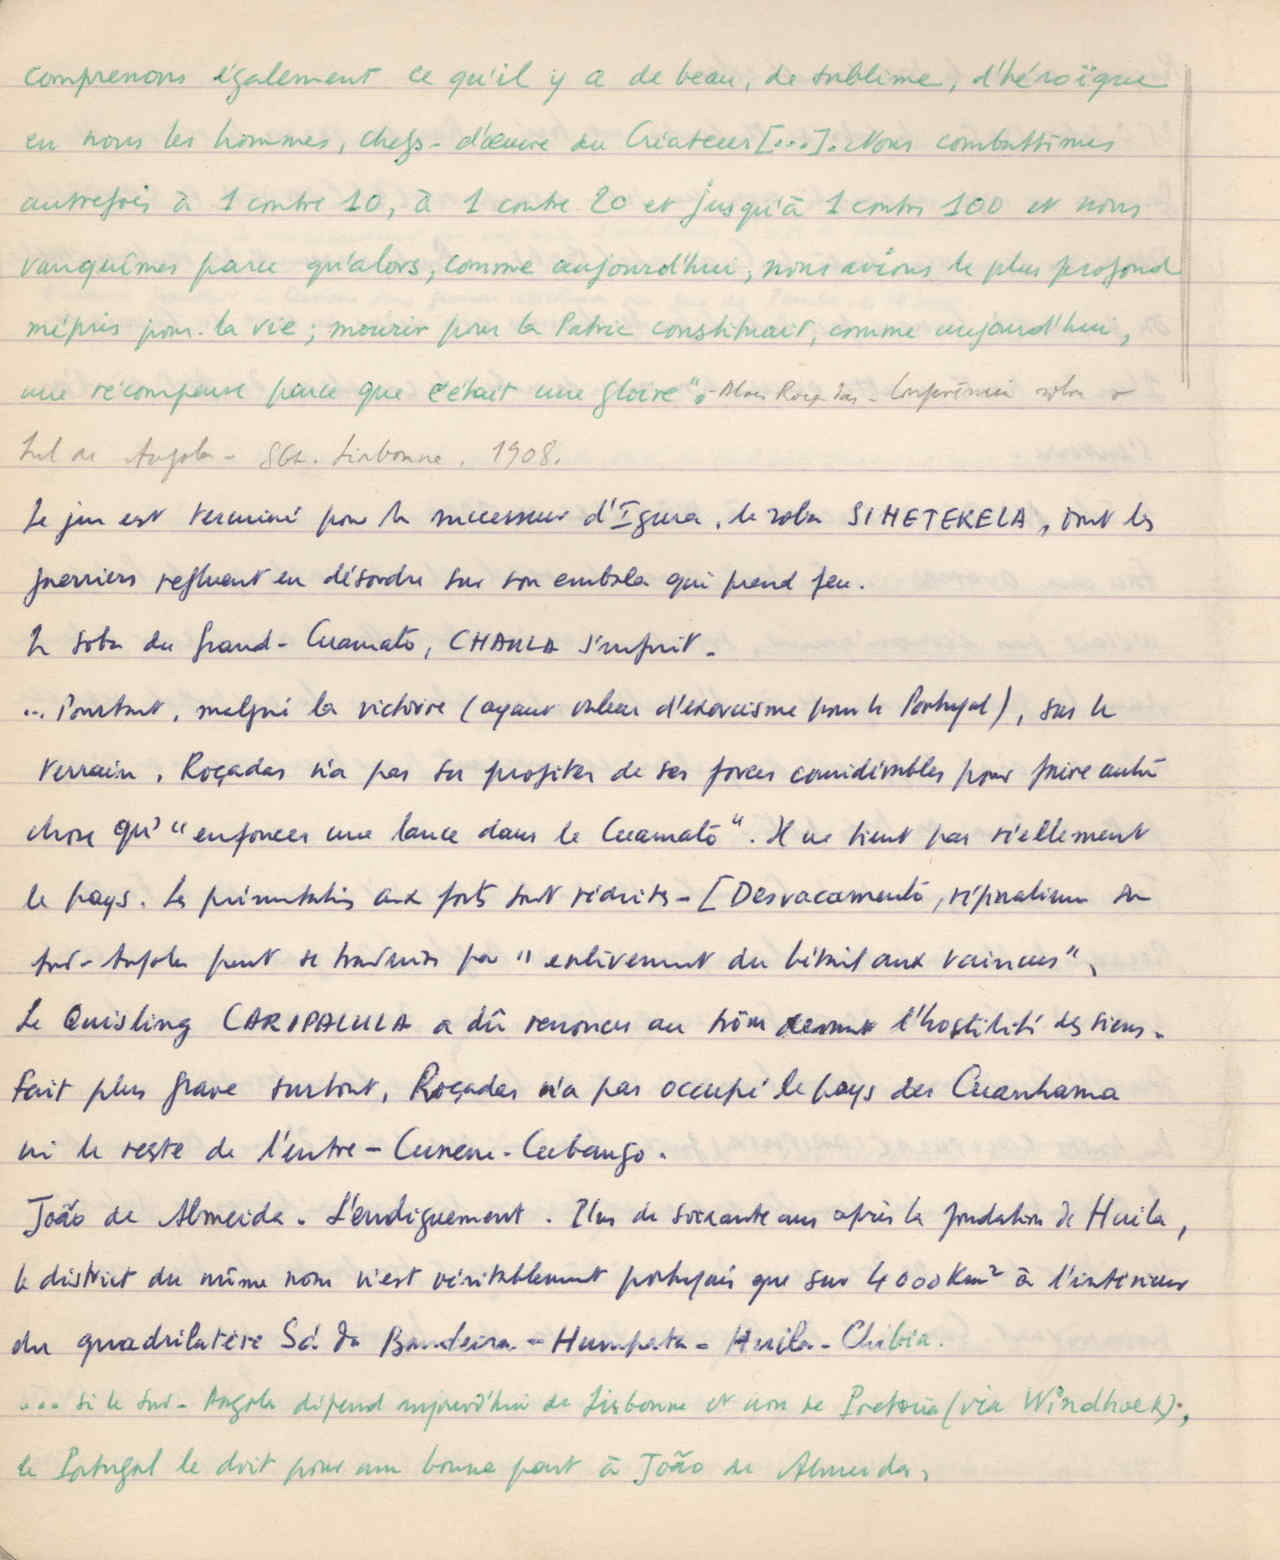 comprenons également ce qu'il y a de beau, de sublime, d'héroïque
en nous les hommes, chefs-d'œuvre du Créateur [...]. Nous combattîmes
autrefois à 1 contre 10, à 1 contre 20 et jusqu'à 1 contre 100 et nous
vanquîmes parce qu'alors, comme aujourd'hui, nous avions le plus profond
mépris pour la vie ; mourir pour la Patrie constituait, comme aujourd'hui,
une récompense parce que c'était une gloire". - Alves Roçadas - Conferência sobre o
Sul de Angola - SGL. Lisbonne. 1908.
Le jeu est terminé pour le successeur d'Igura, le soba SIHETEKELA, dont les
guerriers refluent en désordre sur son embala qui prend feu.
Le soba du Grand-Cuamato, CHAULA s'enfuit.
... Pourtant, malgré la victoire (ayant valeur d'exorcisme pour le Portugal), sur le
terrain, Roçadas n'a pas su profiter de ses forces considérables pour faire autre
chose qu' "enfoncer une lance dans le Cuamato". Il ne tient pas réellement
le pays. Les présentations aux forts sont réduites - [Desvacamento, régionalisme du
Sud-Angola peut se traduire par "enlèvement du bétail aux vaincus",
Le Quisling CARIPALULA a dû renoncer au trône devant l'hostilité des siens.
Fait plus grave surtout, Roçadas n'a pas occupé le pays des Cuanhama
ni le reste de l'entre-Cunene-Cubango.
João de Almeida. L'endiguement. Plus de soixante ans après la fondation de Huila,
le district du même nom n'est véritablement portugais que sur 4000 km² à l'intérieur
du quadrilatère Sá da Bandeira - Humpata - Huila - Chibia.
... si le Sud-Angola dépend aujourd'hui de Lisbonne et non de Pretoria (via Windhoek),
le Portugal le doit pour une bonne part à João de Almeida,